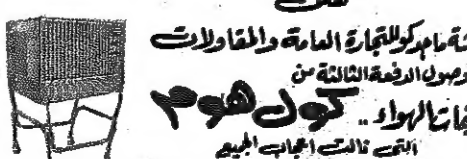 ماجدكو للتجارة العامة والمقاولات
وصول الدفعة الثالثة من
الهواء .. كول هوم
التي نالت اعجاب الجميع